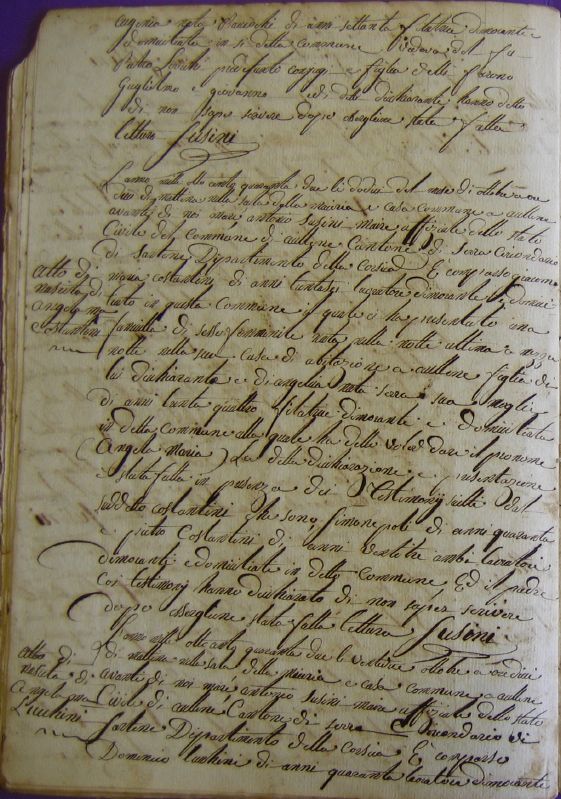 eugenia nata di anni settanta filatrice dimorante
e domiciliata in si della Commune Vedova del fu
Pietro prefunti conjugi e figlia delli furono
Guglielmo e giovanna ed i detti dichiaranti hanno detto
di non saper scrivere dopo essergliene stata fatta
lettura Susini
L'anno mille otto cento quaranta due li dodici del mese di ottobre a ore
dieci di mattina nella sala della mairia e casa commune a aullene
avanti di noi marc'antonio Susini maire affiziale dello stato
Civile del Commune di aullene Cantone di serra Circondario
di Sartene Dipartimento della Corsica E comparso giacomo
maria costantini di anni lavoratore dimorante e domici
liato in questa Commune il quale ci ha presentato una
fanciulla di sesso femminile nata nella notte ultima a mezza
notte nella sua casa di abitazione a aullene figlia di
lui dichiarante e di angelica nata serra sua moglie
di anni trenta quattro filatrice dimorante e domiciliata
in detta Commune alla quale ha detto voler dare il pronome
(Angela Maria) La detta dichiarazione e presentazione
è stata fatta in presenza dei Testimonj scelti dal
suddetto costantini che sono Simone poli di anni quaranta
e pietro Costantini di anni ambi lavoratori
dimoranti e domiciliati in detta Commune Ed il padre
coi testimonj hanno dichiarato di non saper scrivere
dopo essergliene stata fatta lettura Susini
Atto di
nascita di
angela ma
Costantini
L'anno mille otto cento quaranta due li ottobre a ore dieci
di mattina nella sala della mairia e casa commune a aullene
avanti di noi marc'antonio Susini maire affiziale dello stato
Civile di aullene Cantone di serra Circondario di
Sartene Dipartimento della Corsica E comparso
Domenico lucchini di anni quaranta lavoratore dimorante
Atto di
nascita di
Angela ma
Lucchini